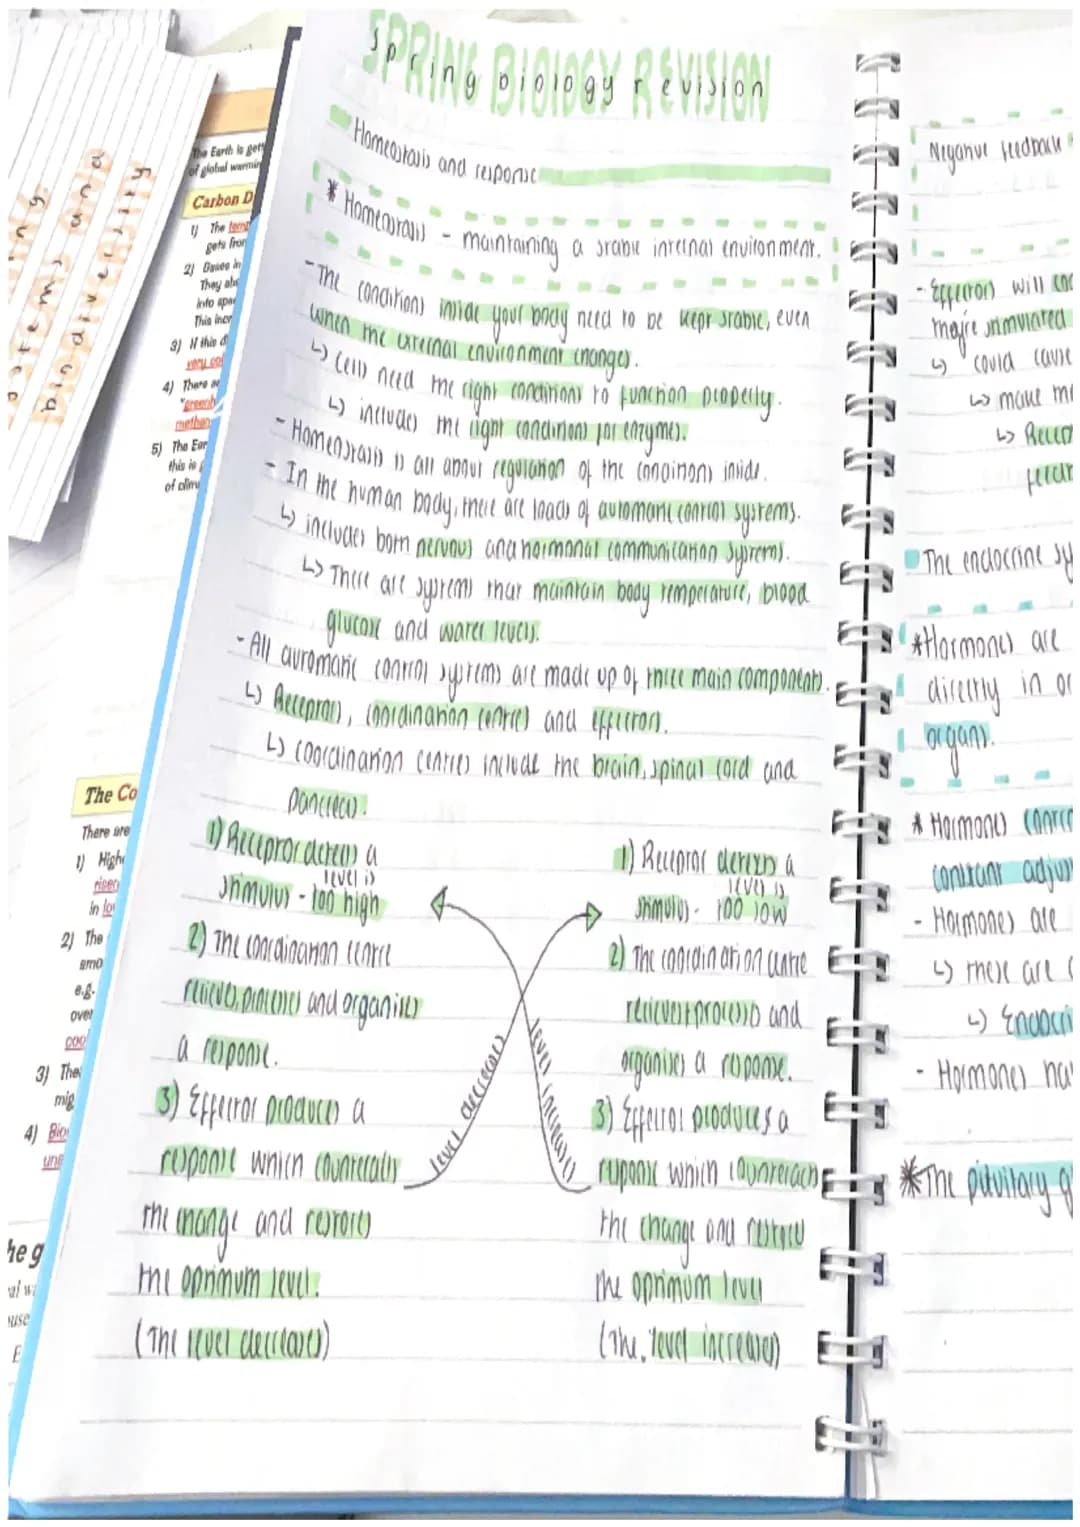 SPRING BIOLOGY REVISION
spring biology revision
Homeostasis and response
* Homeostasis - maintaining a stable internal environment.
- The conditions inside your body need to be kept stable, even
when the external environment changes.
↳ cells need the right conditions to function properly.
↳ includes the right conditions for enzymes.
- Homeostasis is all about regulation of the conditions inside.
- In the human body, there are loads of automatic control systems.
↳ includes both nervous and hormonal communication systems.
↳ There are systems that maintain body temperature, blood
glucose and water levels.
- All automatic control systems are made up of three main components.
↳ Receptors, coordination centres and effectors.
↳ coordination centres include the brain, spinal cord and
pancreas.
1) Receptor detects a
level is
stimulus - too high
2) The coordination centre
receives, processes and organises
a response.
3) Effector produces a
response which counteracts
the change and restores
the optimum level.
(The level decreases)
level decreases
level increases
1) Receptor detects a
level is
stimulus - too low
2) The coordination centre
receives + process and
organises a response.
3) Effector produces a
response which counteracts
the change and restores
the optimum level
(The level increases)
Negative feedback
- Effectors will
they're stimulated
↳ could cause
↳ make
↳
The endocrine sy
* Hormones are
directly in or
organs.
* Hormones
constant adjus
- Hormones are
↳ these are
↳ Endocri
- Hormones ha
* The pituitary g
and
biodiversity
The Earth is gett
of global warmin
Carbon D
1) The temp
gets from
2) Gases in
They abs
into spa
This incr
3) If this d
very col
4) There ar
"greenh
methan
5) The Ear
this is
of clim
The Co
There are
1) High
risen
in lo
2) The
smo
e.g.
over
cool
3) The
mig
4) Bio
una
he g